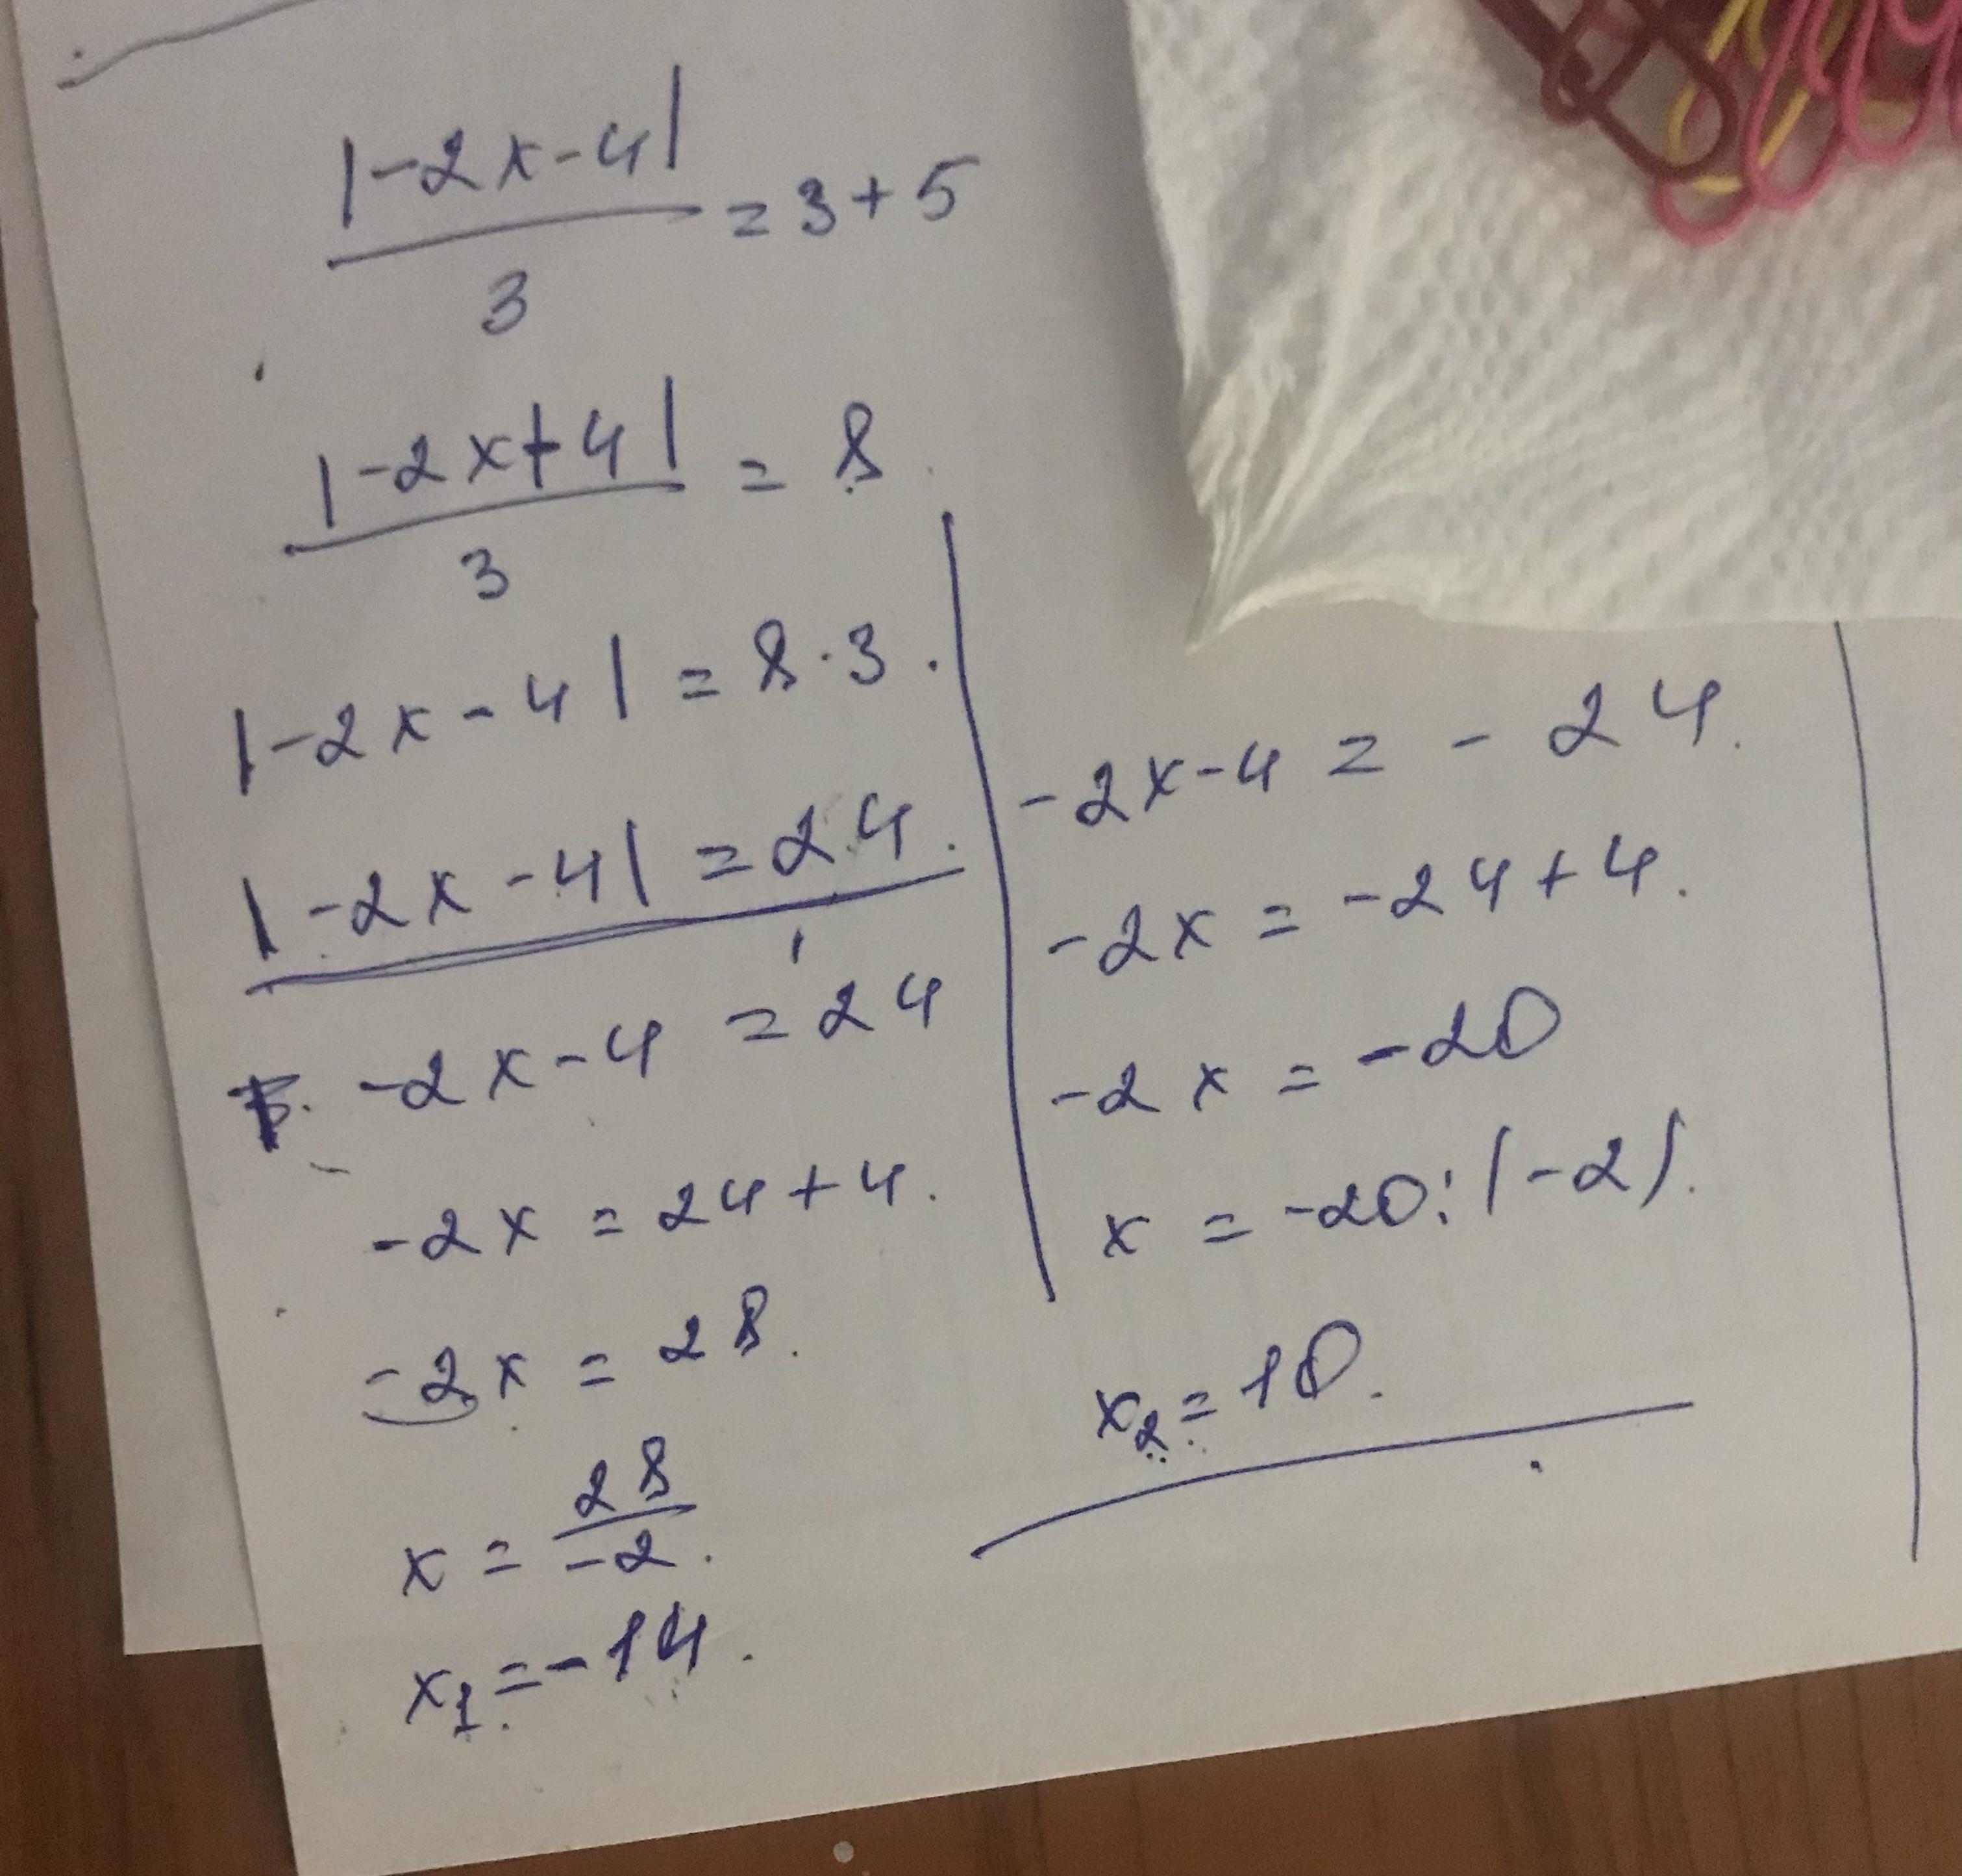 |-2x-4|
= 3+5
3
|-2x+4|
= 8
3
|-2x-4| = 8·3.
|-2x-4| = 24.
-2x-4 = 24
-2x = 24+4.
-2x = 28.
x = 28
-2.
x1 = -14.
-2x-4 = -24.
-2x = -24+4.
-2x = -20
x = -20:(-2).
x2 = 10.